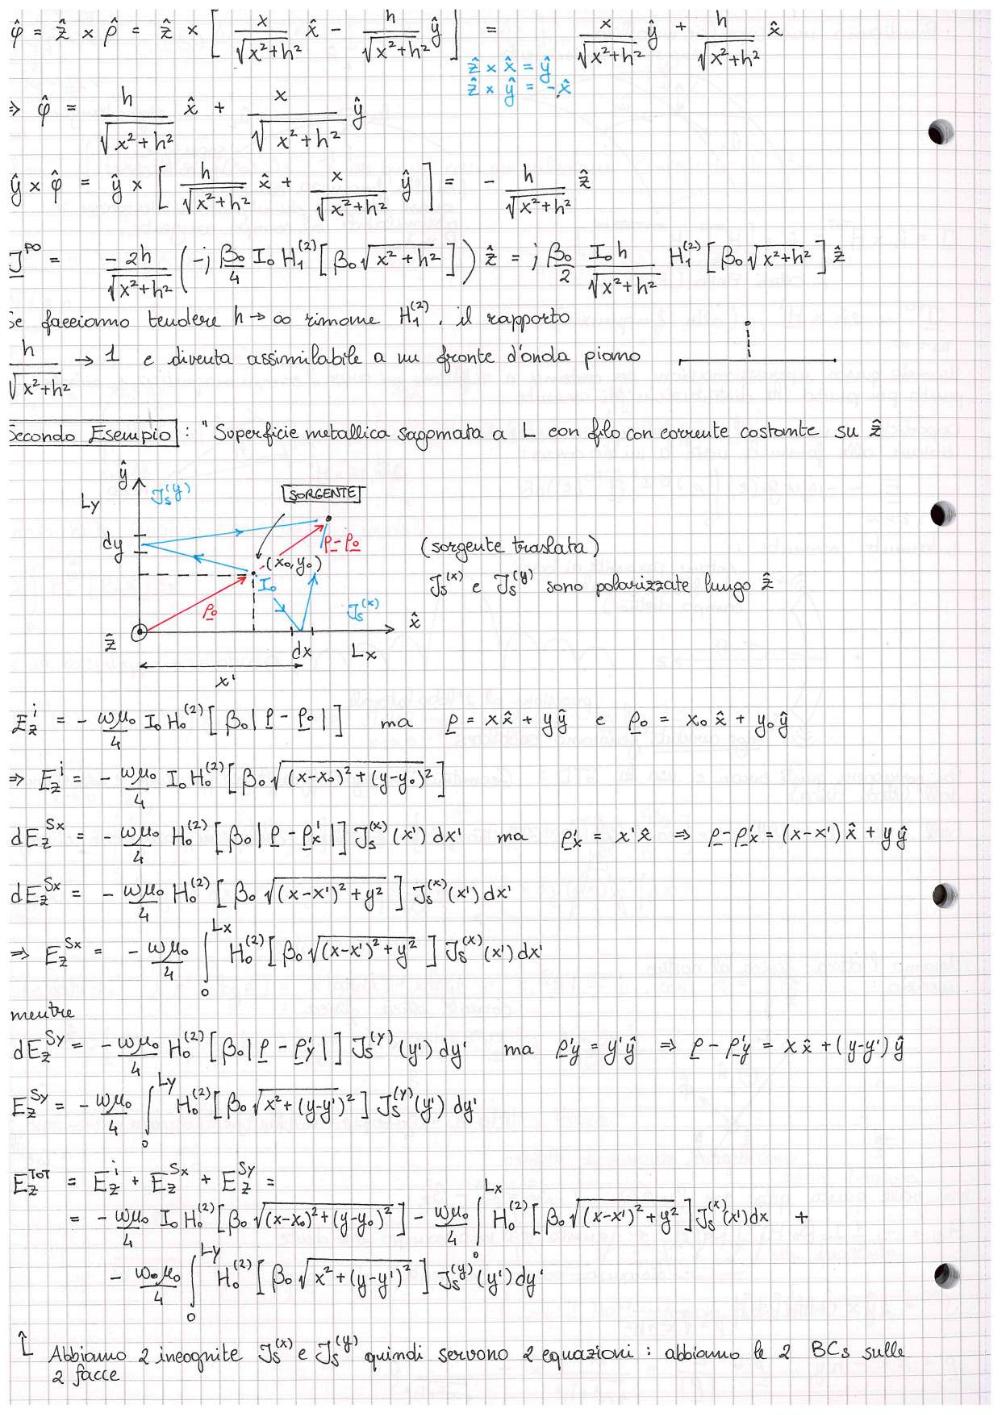 φ̂ = ẑ × ρ̂ = ẑ × [ x/√(x²+h²) x̂ − h/√(x²+h²) ŷ ] = x/√(x²+h²) ŷ + h/√(x²+h²) x̂
ẑ × x̂ = ŷ
ẑ × ŷ = -x̂
⇒ φ̂ = h/√(x²+h²) x̂ + x/√(x²+h²) ŷ
ŷ × φ̂ = ŷ × [ h/√(x²+h²) x̂ + x/√(x²+h²) ŷ ] = − h/√(x²+h²) ẑ
J^PO = −2h/√(x²+h²) (−j β₀/4 I₀ H₁⁽²⁾[β₀√(x²+h²)]) ẑ = j β₀/2 I₀h/√(x²+h²) H₁⁽²⁾[β₀√(x²+h²)] ẑ
Se facciamo tendere h → ∞ rimane H₁⁽²⁾, il rapporto
h/√(x²+h²) → 1 e diventa assimilabile a un fronte d'onda piano
Secondo Esempio : "Superficie metallica sagomata a L con filo con corrente costante su ẑ
ŷ
Ly
Js^(y)
SORGENTE
dy
ρ-ρ₀
(x₀,y₀)
I₀
ρ₀
Js^(x)
x̂
ẑ
dx
Lx
x'
(sorgente traslata)
Js^(x) e Js^(y) sono polarizzate lungo ẑ
Ez^i = − ωμ₀/4 I₀ H₀⁽²⁾[β₀|ρ − ρ₀|] ma ρ = xx̂ + yŷ e ρ₀ = x₀x̂ + y₀ŷ
⇒ Ez^i = − ωμ₀/4 I₀ H₀⁽²⁾[β₀√((x-x₀)²+(y-y₀)²)]
dEz^Sx = − ωμ₀/4 H₀⁽²⁾[β₀|ρ − ρ'x|] Js^(x)(x') dx' ma ρ'x = x'x̂ ⇒ ρ-ρ'x = (x-x')x̂ + yŷ
dEz^Sx = − ωμ₀/4 H₀⁽²⁾[β₀√((x-x')²+y²)] Js^(x)(x') dx'
⇒ Ez^Sx = − ωμ₀/4 ∫₀^Lx H₀⁽²⁾[β₀√((x-x')²+y²)] Js^(x)(x') dx'
mentre
dEz^Sy = − ωμ₀/4 H₀⁽²⁾[β₀|ρ − ρ'y|] Js^(y)(y') dy' ma ρ'y = y'ŷ ⇒ ρ − ρ'y = xx̂ + (y-y')ŷ
Ez^Sy = − ωμ₀/4 ∫₀^Ly H₀⁽²⁾[β₀√(x²+(y-y')²)] Js^(y)(y') dy'
Ez^TOT = Ez^i + Ez^Sx + Ez^Sy =
= − ωμ₀/4 I₀ H₀⁽²⁾[β₀√((x-x₀)²+(y-y₀)²)] − ωμ₀/4 ∫₀^Lx H₀⁽²⁾[β₀√((x-x')²+y²)] Js^(x)(x') dx +
− ω₀μ₀/4 ∫₀^Ly H₀⁽²⁾[β₀√(x²+(y-y')²)] Js^(y)(y') dy'
Abbiamo 2 incognite Js^(x) e Js^(y) quindi servono 2 equazioni : abbiamo le 2 BCs sulle
2 facce